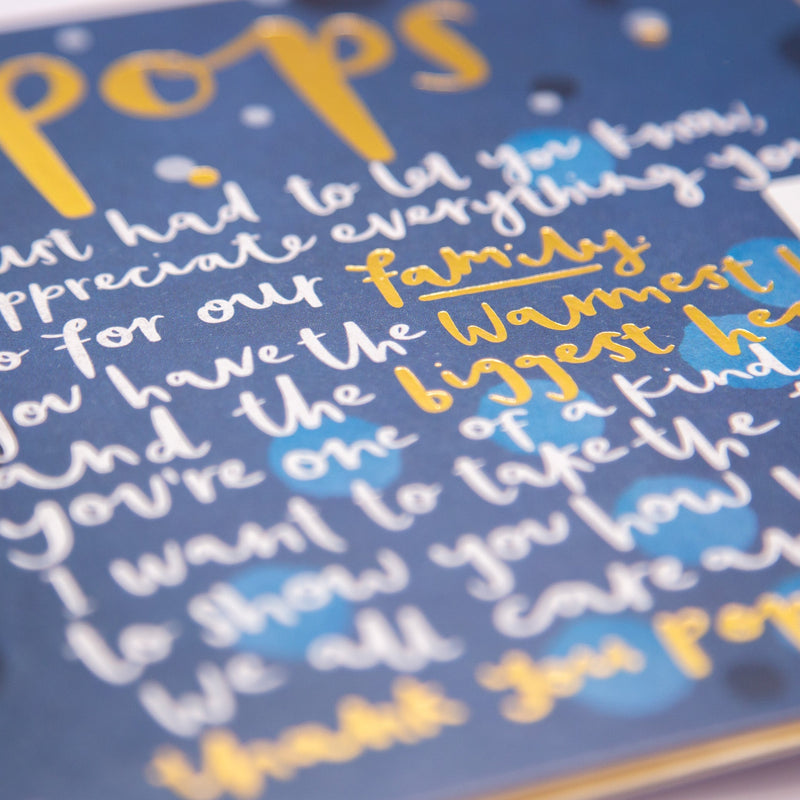 pops
ust had to let you know,
appreciate everything you
o for our family.
you have the warmest
and the biggest he
you're one of a kind
I want to take the t
to show you how
we all care an
thank you pop